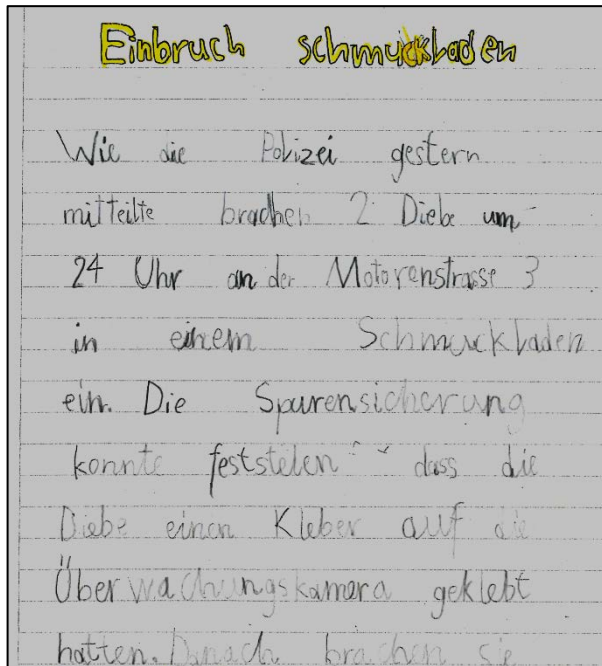 Einbruch schmuckladen
Wie die Polizei gestern
mitteilte brachen 2 Diebe um
24 Uhr an der Motorenstrasse 3
in einem Schmuckladen
ein. Die Spurensicherung
konnte feststelen dass die
Diebe einen Kleber auf die
Überwachungskamera geklebt
hatten. Danach brachen sie